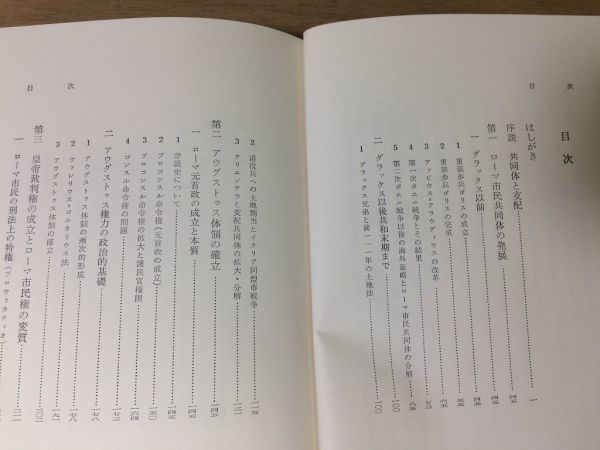 目次
目次
はしがき……一
序説 共同体と支配……四五
第一 ローマ市民共同体の発展……四五
一 グラックス以前……四五
1 重装歩兵ポリスの成立……五五
2 重装歩兵ポリスの完成……六四
3 アッピウス=クラウディウスの改革……七三
4 第一次ポエニ戦争とその結果……八五
5 第二次ポエニ戦争以後の海外征略とローマ市民共同体の分解……一〇〇
二 グラックス以後共和末期まで
1 グラックス兄弟と前一一一年の土地法……一〇〇
2 退役兵への土地割当とイタリア同盟市戦争……一一五
3 クリエンテラと支配共同体の拡大・分解……一三一
第二 アウグストゥス体制の確立……一四五
一 ローマ元首政の成立と本質……一四五
1 学説史について……一四五
2 プロコンスル命令権(元首政の成立)……一五〇
3 プロコンスル命令権の拡大と護民官権限……一六四
4 コンスル命令権の問題……一七八
二 アウグストゥス権力の政治的基礎……一七八
1 アウグストゥス体制の漸次的形成……一七八
2 ヴァレリウス=コルネリウス法……一九一
3 アウグストゥス体制の確立……二〇二
第三 皇帝裁判権の成立とローマ市民権の変質……二一一
一 ローマ市民の刑法上の特権(プロヴォカティオ)
目次